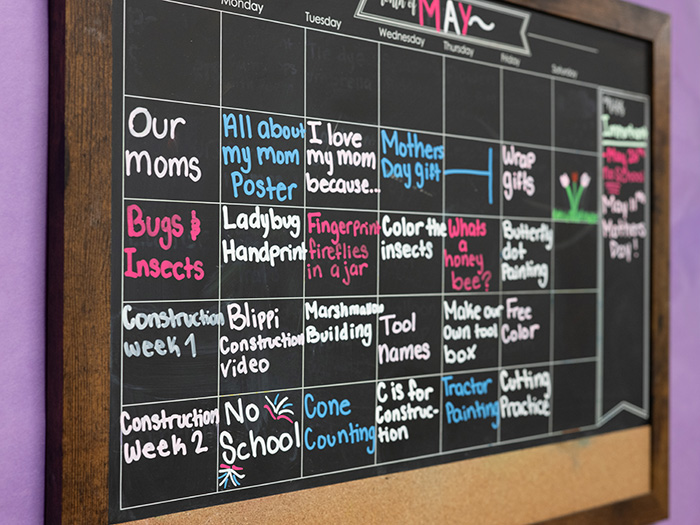 Month of
MAY
Monday
Tuesday
Wednesday
Thursday
Friday
Saturday
Our
moms
All about
my mom
Poster
I love
my mom
because...
Mothers
Day gift
Wrap
gifts
Bugs &
Insects
Ladybug
Handprint
Fingerprint
fireflies
in a jar
Color the
insects
Whats
a
honey
bee?
Butterfly
dot
Painting
Construction
week 1
Blippi
Construction
video
Marshmallow
Building
Tool
names
Make our
own tool
box
Free
Color
Construction
Week 2
No
School
Cone
Counting
C is for
Construc-
tion
Tractor
Painting
Cutting
Practice
Important
No School
May 11th
Mothers
Day!